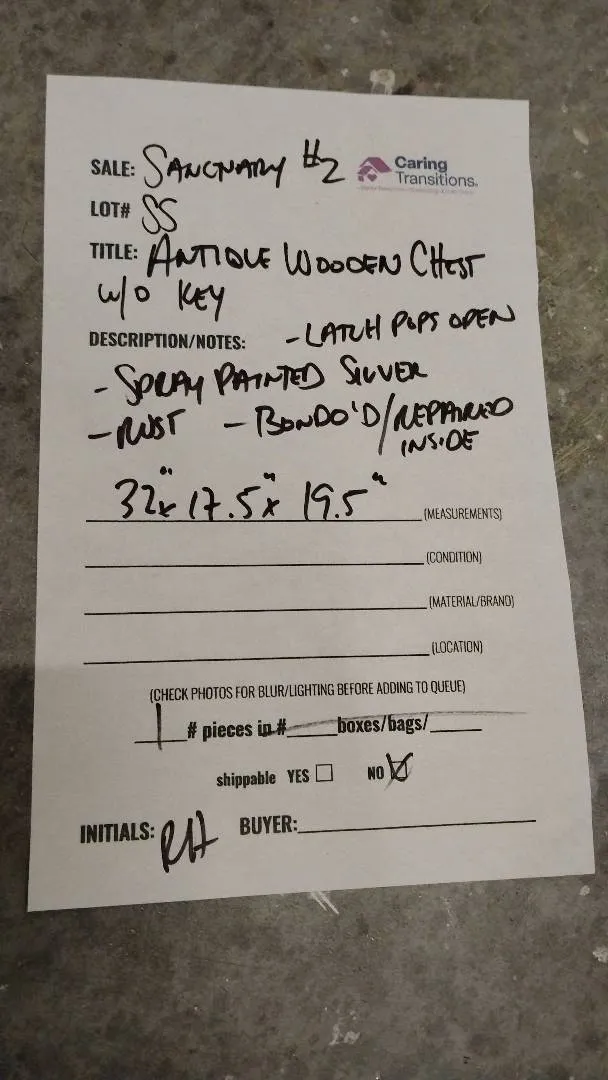 SALE: SANCTUARY #2
Caring
Transitions.
LOT# SS
TITLE: ANTIQUE WOODEN CHEST
W/O KEY
DESCRIPTION/NOTES: - LATCH POPS OPEN
- SPRAY PAINTED SILVER
- RUST - BONDO'D/REPAIRED
INSIDE
32" x 17.5" x 19.5" (MEASUREMENTS)
(CONDITION)
(MATERIAL/BRAND)
(LOCATION)
(CHECK PHOTOS FOR BLUR/LIGHTING BEFORE ADDING TO QUEUE)
1 # pieces in # boxes/bags/
shippable YES NO
INITIALS: RH BUYER: